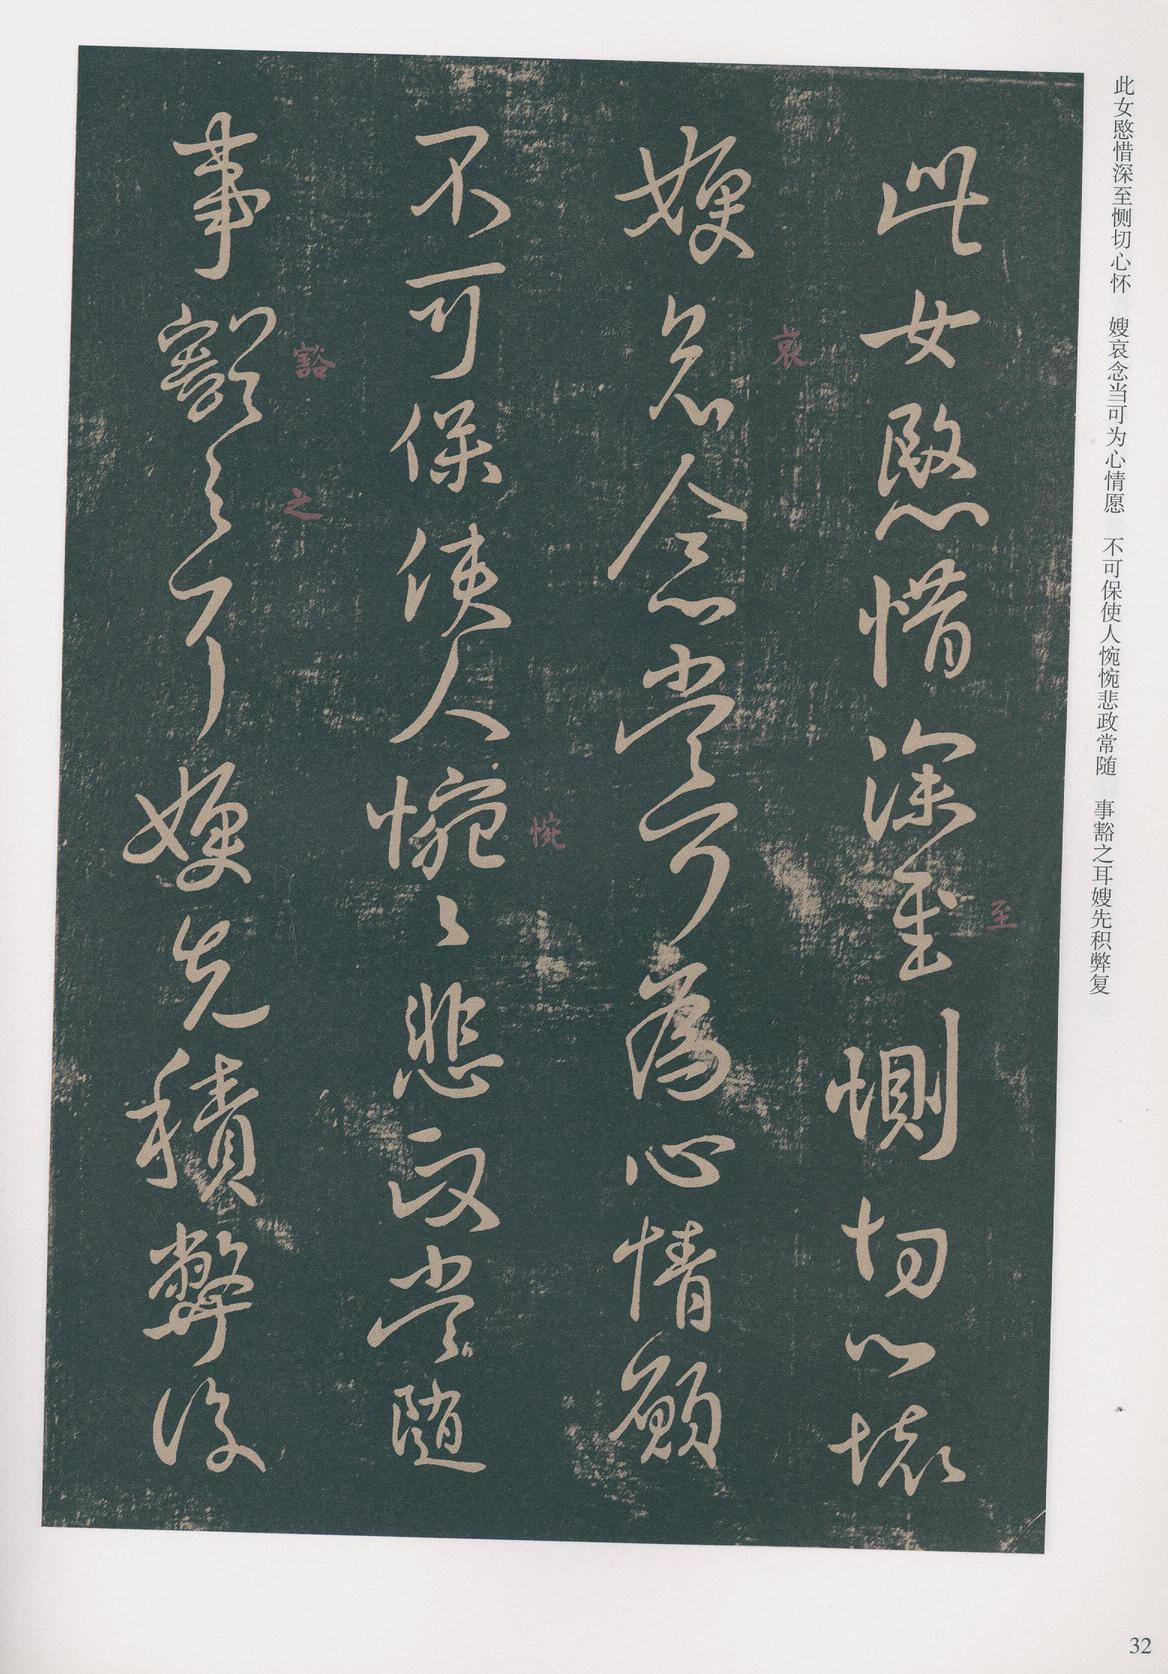 此女愍惜深至恻切心怀　嫂哀念当可为心情愿　不可保使人惋惋悲政常随　事豁之耳嫂先积弊复
此女愍惜深至恻切心懷
至
嫂哀念當可為心情願
哀
不可保使人惋〻悲政常随
惋
事豁之耳嫂先積弊復
豁
之
32